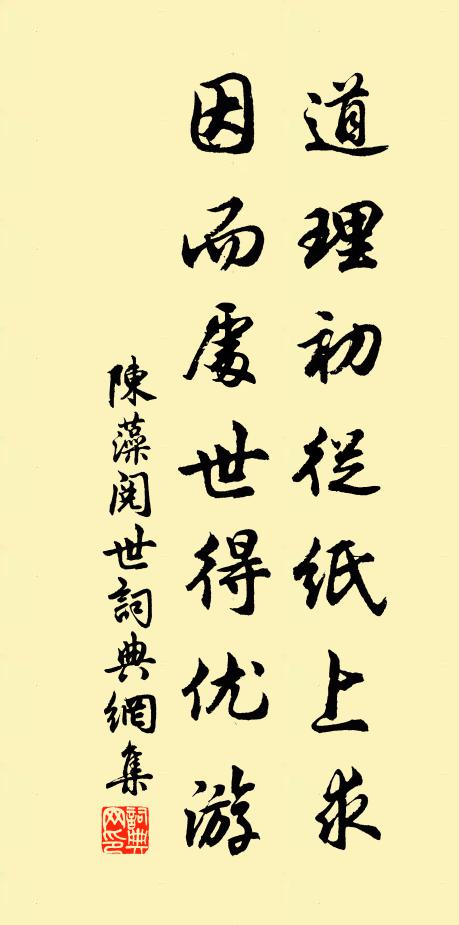 道理初從紙上求
因而處世得优游
陳藻閱世詞典網集
詞典網印